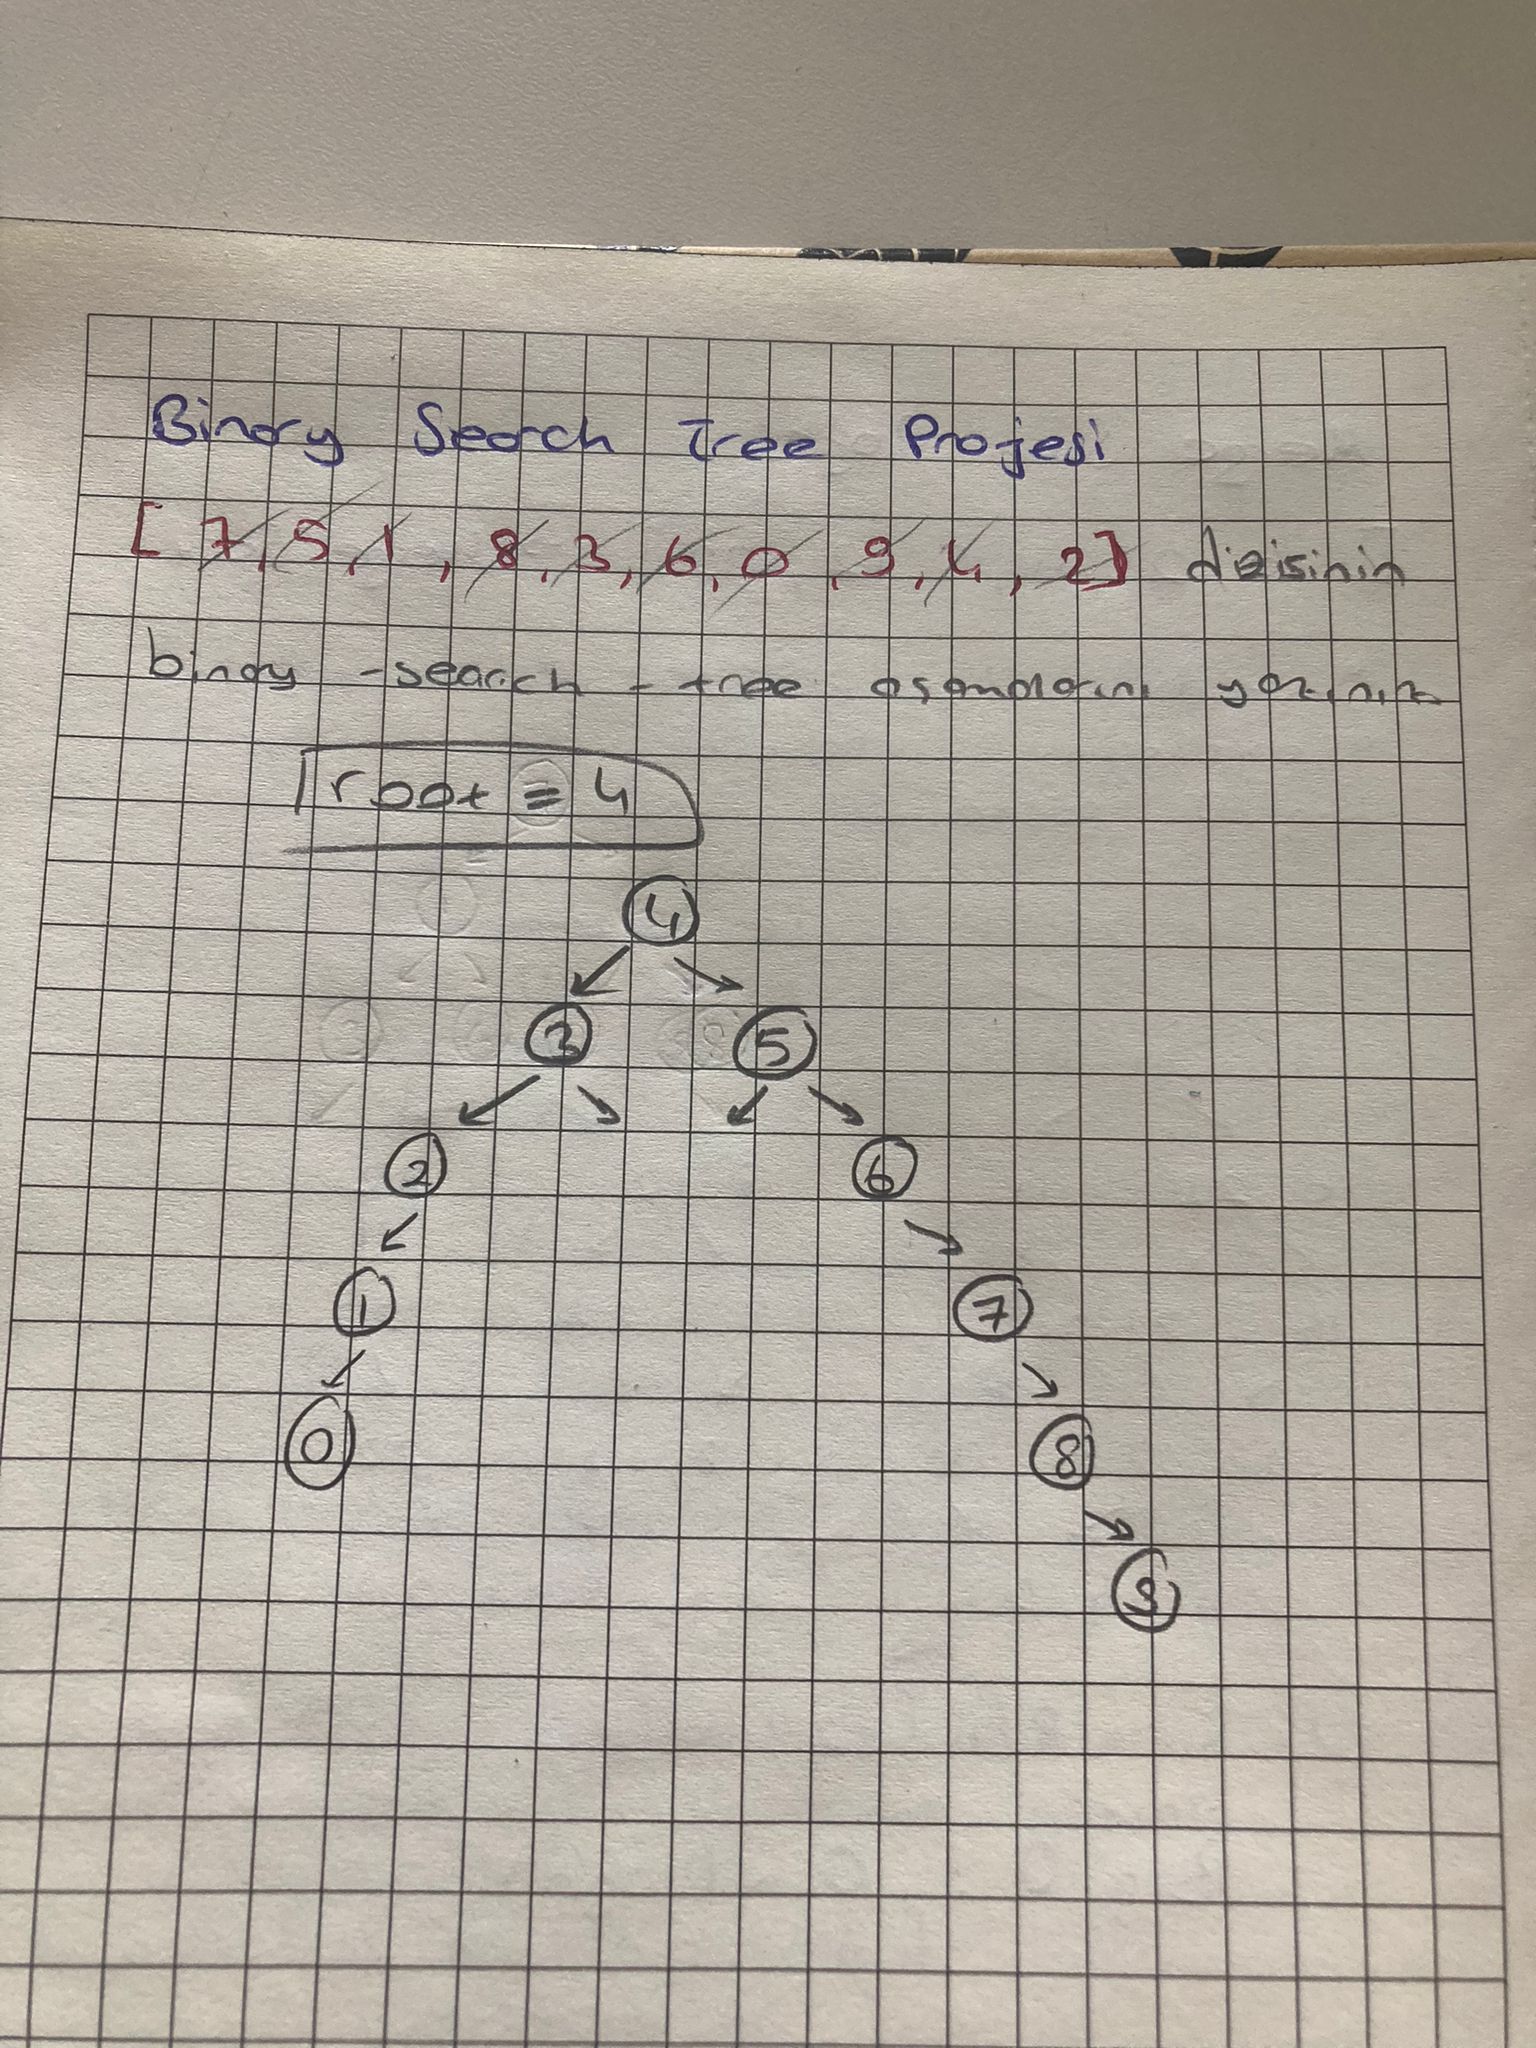 Binary Search Tree Projesi
[ 7, 5, 1, 8, 3, 6, 0, 9, 4, 2] dizisinin
binay -search - tree aşamalarını yazınız
root = 4
4
3 5
2 6
1 7
0 8
9